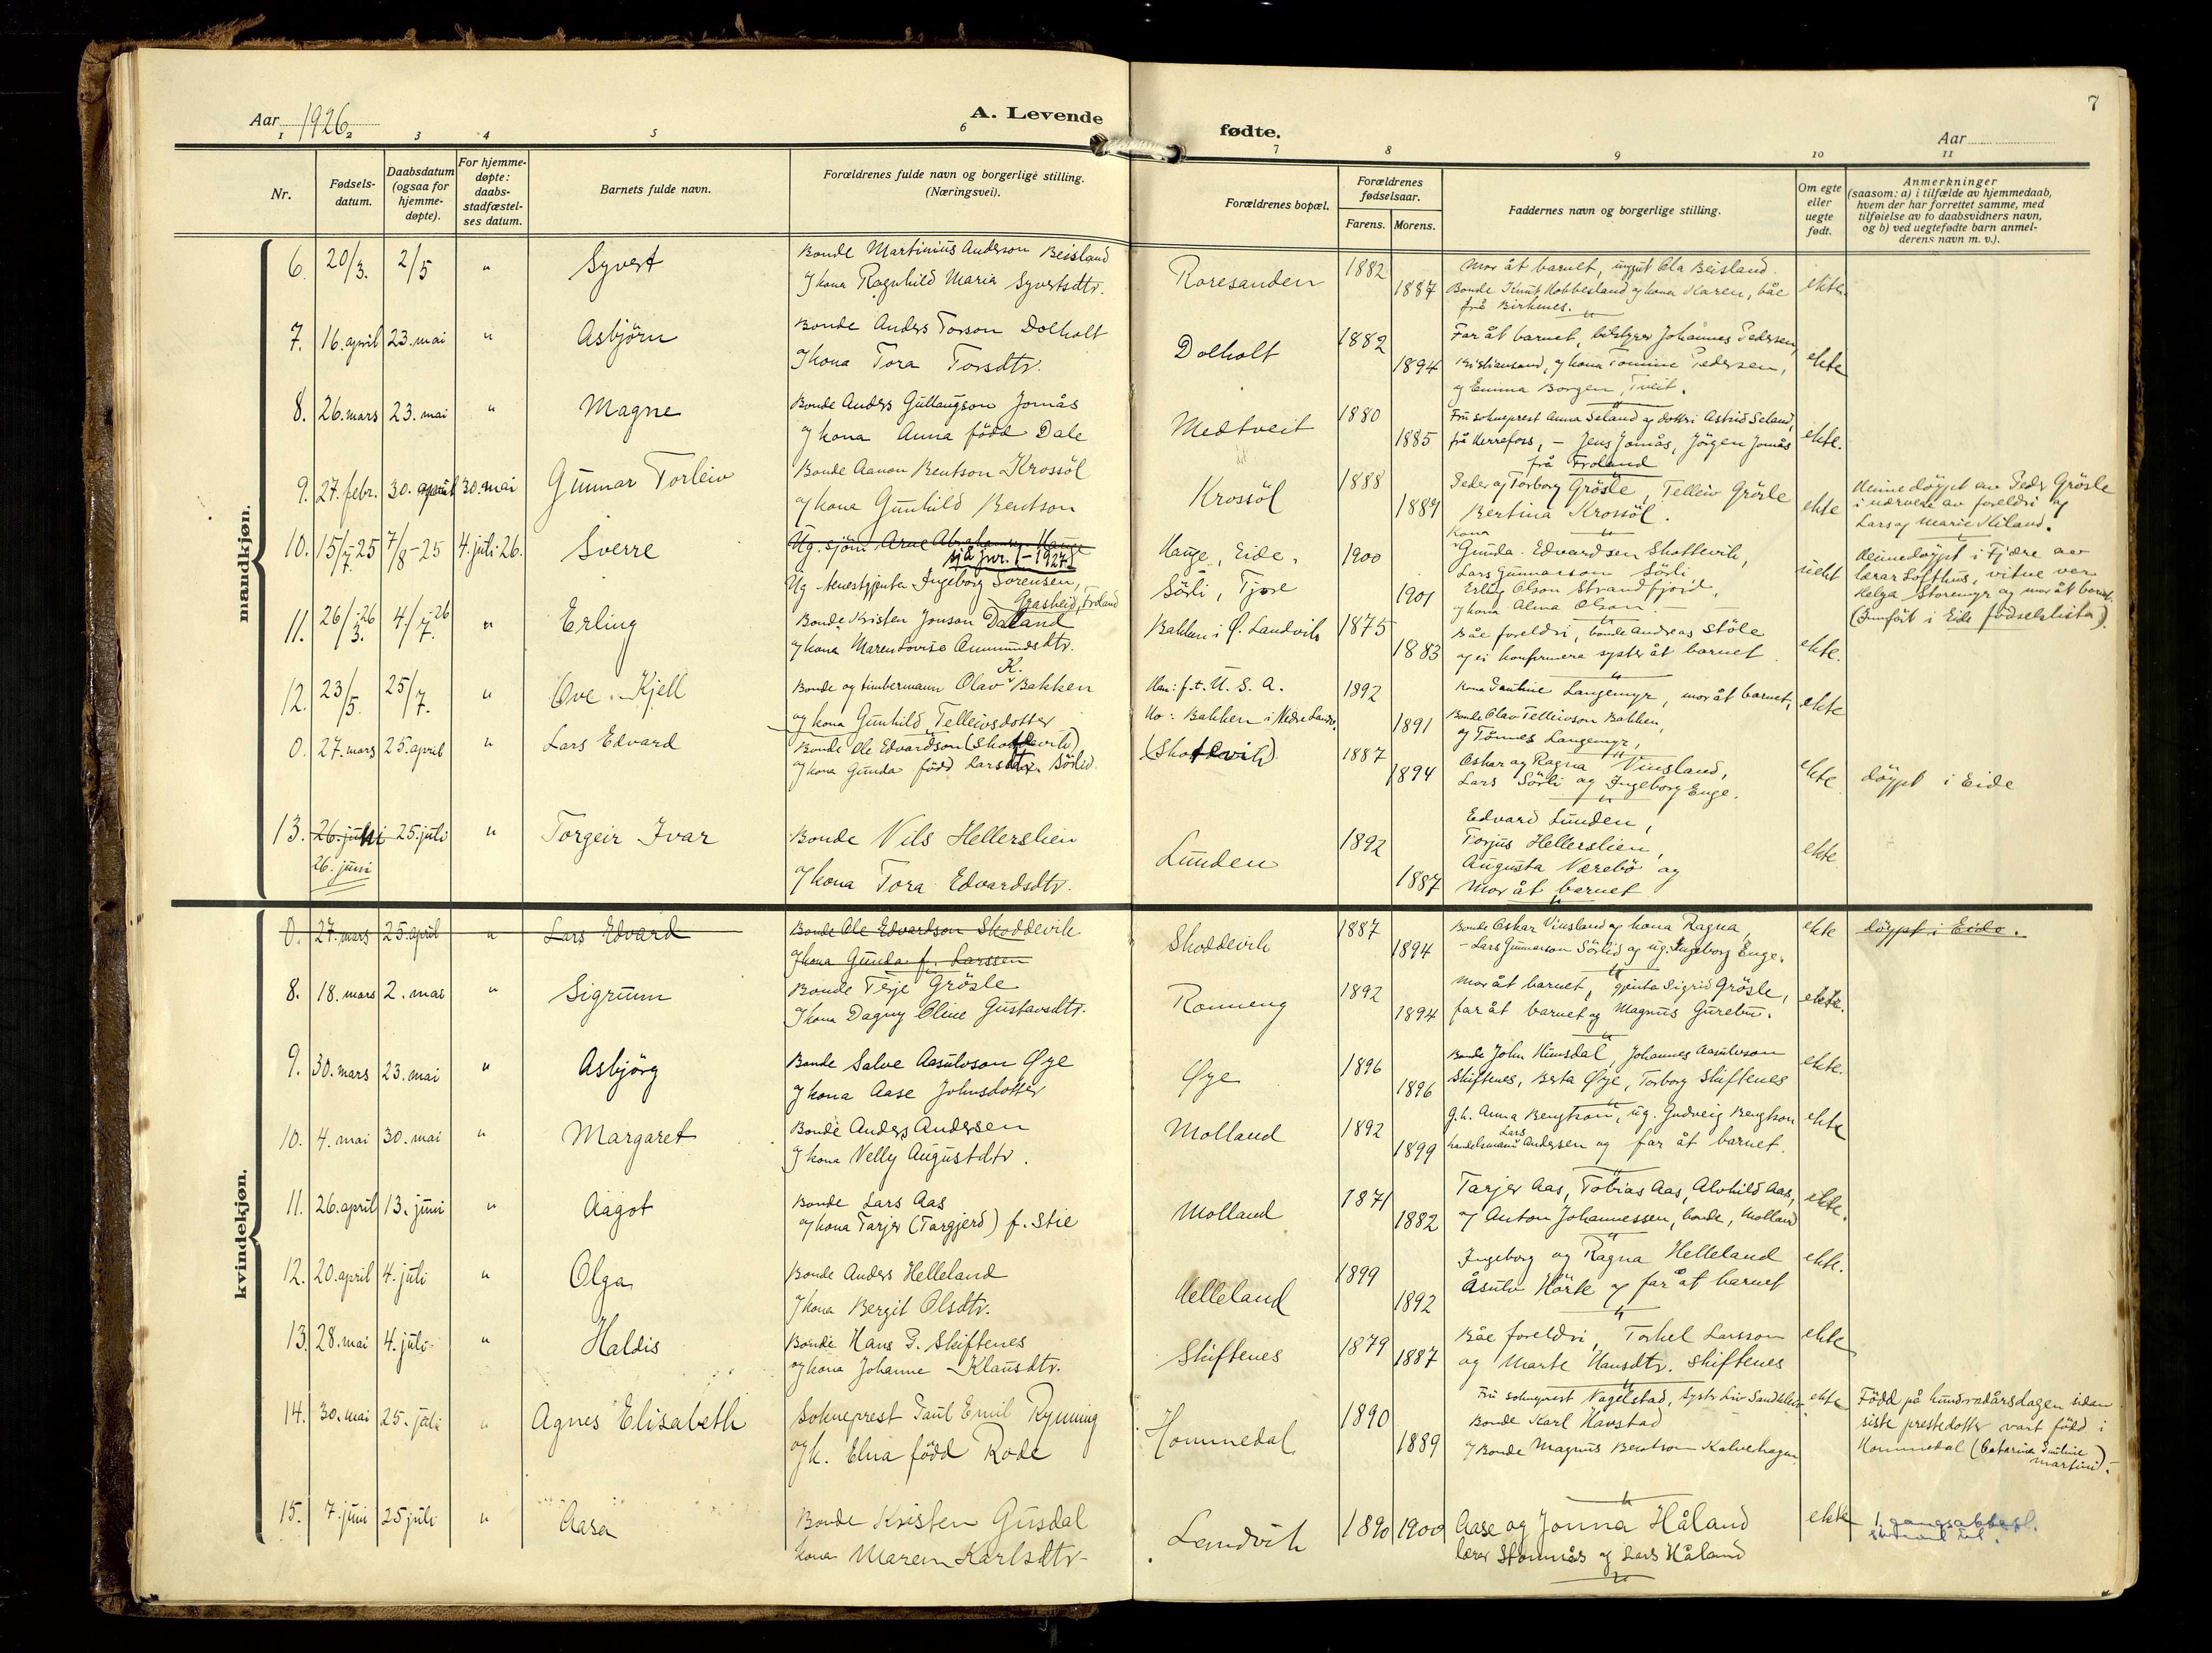 7
Aar 1926
A. Levende
fødte.
Aar
1 2 3 4 5 6 7 8 9 10 11
Nr.
Fødsels-
datum.
Daabsdatum
(ogsaa for
hjemme-
døpte).
For hjemme-
døpte:
daabs-
stadfæstel-
ses datum.
Barnets fulde navn.
Forældrenes fulde navn og borgerlige stilling.
(Næringsvei).
Forældrenes bopæl.
Forældrenes
fødselsaar.
Farens. Morens.
Faddernes navn og borgerlige stilling.
Om egte
eller
uegte
født.
Anmerkninger
(saasom: a) i tilfælde av hjemmedaab,
hvem der har forrettet samme, med
tilføielse av to daabsvidners navn,
og b) ved uegtefødte barn anmel-
derens navn m. v.).
mandkjøn.
6. 20/3. 2/5 " Syvert
Bonde Martinius Anderson Beisland
og kona Ragnhild Maria Syvertsdtr.
Roresanden 1882 1887
Mor åt barnet, unggut Ola Beisland.
Bonde Knut Hobbesland og kona Karen, båe
frå Birkenes.
ekte.
7. 16. april 23. mai " Asbjörn
Bonde Anders Torson Dolholt
og kona Tora Torsdtr.
Dolholt 1882 1894
Far åt barnet, bilstyrer Johannes Pedersen,
Kristiansand, og kona Tomine Pedersen,
og Emma Borgen, Tveit.
ekte
8. 26. mars 23. mai " Magne
Bonde Anders Gullaugson Jomås
og kona Anna född Dale
Medtveit 1880 1885
Fru sokneprest Anna Seland og dotri Astrid Seland,
frå Herrefoss, – Jens Jomås, Jörgen Jomås
frå Froland
ekte.
9. 27. febr. 30. april 30. mai Gunnar Torleiv
Bonde Aanon Bentson Krossöl
og kona Gunhild Bentson
Krossöl 1888 1887
Peder og Torborg Grösle, Telleiv Grösle
Bertina Krossöl.
ekte
Heimedöypt av Peder Grösle
i nærvere av foreldri og
Lars og Marie Kiland.
10. 15/7-25 7/8-25 4. juli 26. Sverre
Ug. sjöm. Arne Abrahamsen Hauge
sjå jur. 1 – 1927
Ug. tenestgjenta Ingeborg Sorensen,
Grasheid, Froland
Hauge, Eide,
Sörli, Fjære
1900 1901
Kona Gunda Edvardsen Skottevik,
Lars Gunnarson Sörli
Erling Olson Strandfjord,
og kona Alma Olson. –
uekt
Heimedöypt i Fjære av
lærar Softhus, vitne var
Helga Storemyr og mor åt barnet.
(Innfört i Eide födselslista).
11. 26/3.-26 4/7.-26 " Erling
Bonde Kristen Jonson Daland
og kona Maren Lovise Ommundsdtr.
Bakken i Ø. Landvik 1875 1883
Båe foreldri, bonde Andreas Stöle
og ei konfirmere syster åt barnet
ekte.
12. 23/5. 25/7. " Ove Kjell
Bonde og timbermann Olav K. Bakken
og kona Gunhild Telleivsdotter
Han: f.t. U. S. A.
Ho: Bakken i Nedre Landv.
1892 1891
Kona Pauline Langemyr, mor åt barnet,
Bonde Olav Telleivson Bakken,
og Tönnes Langemyr,
ekte
0. 27. mars 25. april " Lars Edvard
Bonde Ole Edvardson (Skottevik)
og kona Gunda född Larsdtr. Sörlid
(Skottevik) 1887 1894
Oskar og Ragna Vinsland,
Lars Sörli og Ingeborg Enge.
ekte döypt i Eide
13. 26. juni 25. juli " Torgeir Ivar
26. juni
Bonde Nils Hellerslien
og kona Tora Edvardsdtr.
Lunden 1892 1887
Edvard Lunden,
Torjus Hellerslien,
Augusta Nærebö og
Mor åt barnet
ekte
kvindekjøn.
0. 27. mars 25. april " Lars Edvard
Bonde Ole Edvardson Skoddevik
og kona Gunda f. Larssen
Skoddevik 1887 1894
Bonde Oskar Vinsland og kona Ragna,
– Lars Gunnarson Sörlid og ug. Ingeborg Enge.
ekte döypt i Eide.
8. 18. mars 2. mai " Sigrunn
Bonde Terje Grösle
og kona Dagny Oline Gustavsdtr.
Romeng 1892 1894
Mor åt barnet, gjenta Sigrid Grösle,
far åt barnet og Magnus Gurebu.
ekte.
9. 30. mars 23. mai " Asbjörg
Bonde Salve Aasulvson Øye
og kona Aase Johnsdotter
Øye 1896 1896
Bonde John Humsdal, Johannes Aasulvson
Skiftenes, Berta Øye, Torborg Skiftenes
ekte.
10. 4. mai 30. mai " Margaret
Bonde Anders Andersen
og kona Nelly Augustdtr.
Molland 1892 1899
g.k. Anna Bengtson, ug. Gudveig Bengtson
handelsmann Lars Andersen og far åt barnet.
ekte
11. 26. april 13. juni " Aagot
Bonde Lars Aas
og kona Tarjer (Targjerd) f. Stie
Molland 1871 1882
Tarjer Aas, Tobias Aas, Alvhild Aas,
og Anton Johannessen, bonde, Molland
ekte.
12. 20. april 4. juli " Olga
Bonde Anders Helleland
og kona Bergit Olsdtr.
Helleland 1899 1892
Ingeborg og Ragna Helleland
Åsulv Hörte og far åt barnet
ekte.
13. 28. mai 4. juli " Haldis
Bonde Hans P. Skiftenes
og kona Johanne Klausdtr.
Skiftenes 1879 1887
Båe foreldri, Torkel Larsson
og Marte Hansdtr. Skiftenes
ekte
14. 30. mai 25. juli " Agnes Elisabeth
Sokneprest Paul Emil Rynning
og k. Elna född Rode
Hommedal 1890 1889
Fru sokneprest Nagelstad, Syster Liv Sandkleiv
Bonde Karl Havstad
og Bonde Magnus Bentson Kalvehagen
ekte
Född på hundradårsdagen sidan
siste prestedotter vart född i
Hommedal (Catarina Pauline
Martini). –
15. 7. juni 25 juli " Aasa
Bonde Kristen Gusdal
kona Maren Karlsdtr. –
Landvik 1890 1900
Aase og Jonna Håland
lærar Stomnås og Lars Håland
ekte